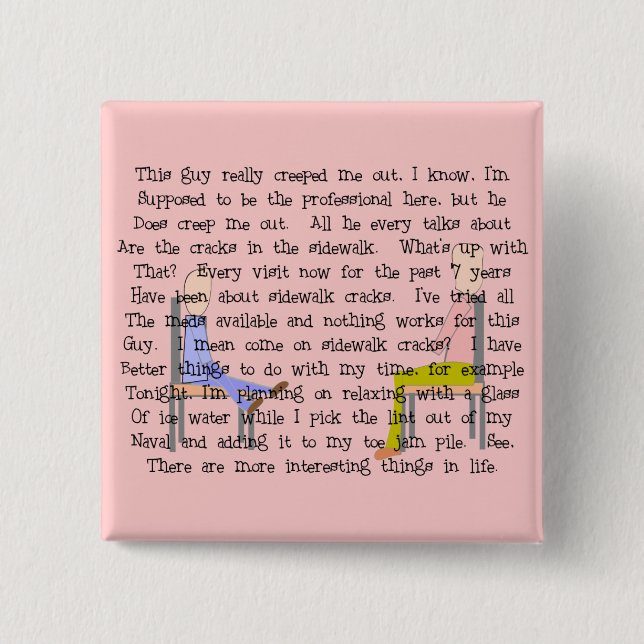 This guy really creeped me out, I know, I'm
Supposed to be the professional here, but he
Does creep me out. All he every talks about
Are the cracks in the sidewalk. What's up with
That? Every visit now for the past 7 years
Have been about sidewalk cracks. I've tried all
The meds available and nothing works for this
Guy. I mean come on sidewalk cracks? I have
Better things to do with my time, for example
Tonight I'm planning on relaxing with a glass
Of ice water while I pick the lint out of my
Naval and adding it to my toe jam pile. See,
There are more interesting things in life.